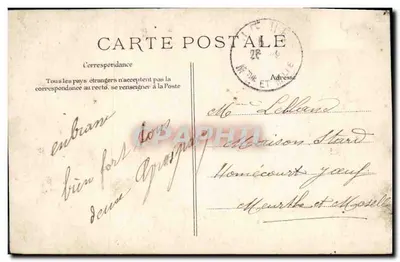 CARTE POSTALE
Correspondance
Tous les pays étrangers n'acceptent pas la
correspondance au recto, se renseigner à la Poste
Adresse
Mme Leblanc
Maison Stard
Homécourt Jœuf
Meurthe et Moselle
bien fort tous
deux